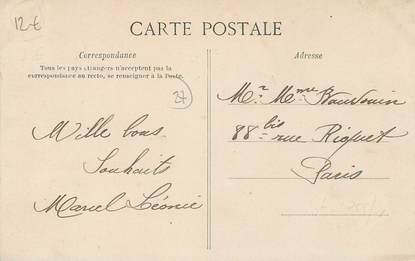 12-€
CARTE POSTALE
Correspondance
Tous les pays étrangers n'acceptent pas la
correspondance au recto, se renseigner à la Poste.
27
Mille bons
Souhaits
Marcel Léonie
Adresse
Mr. Mme
88 bis rue Riquet
Paris